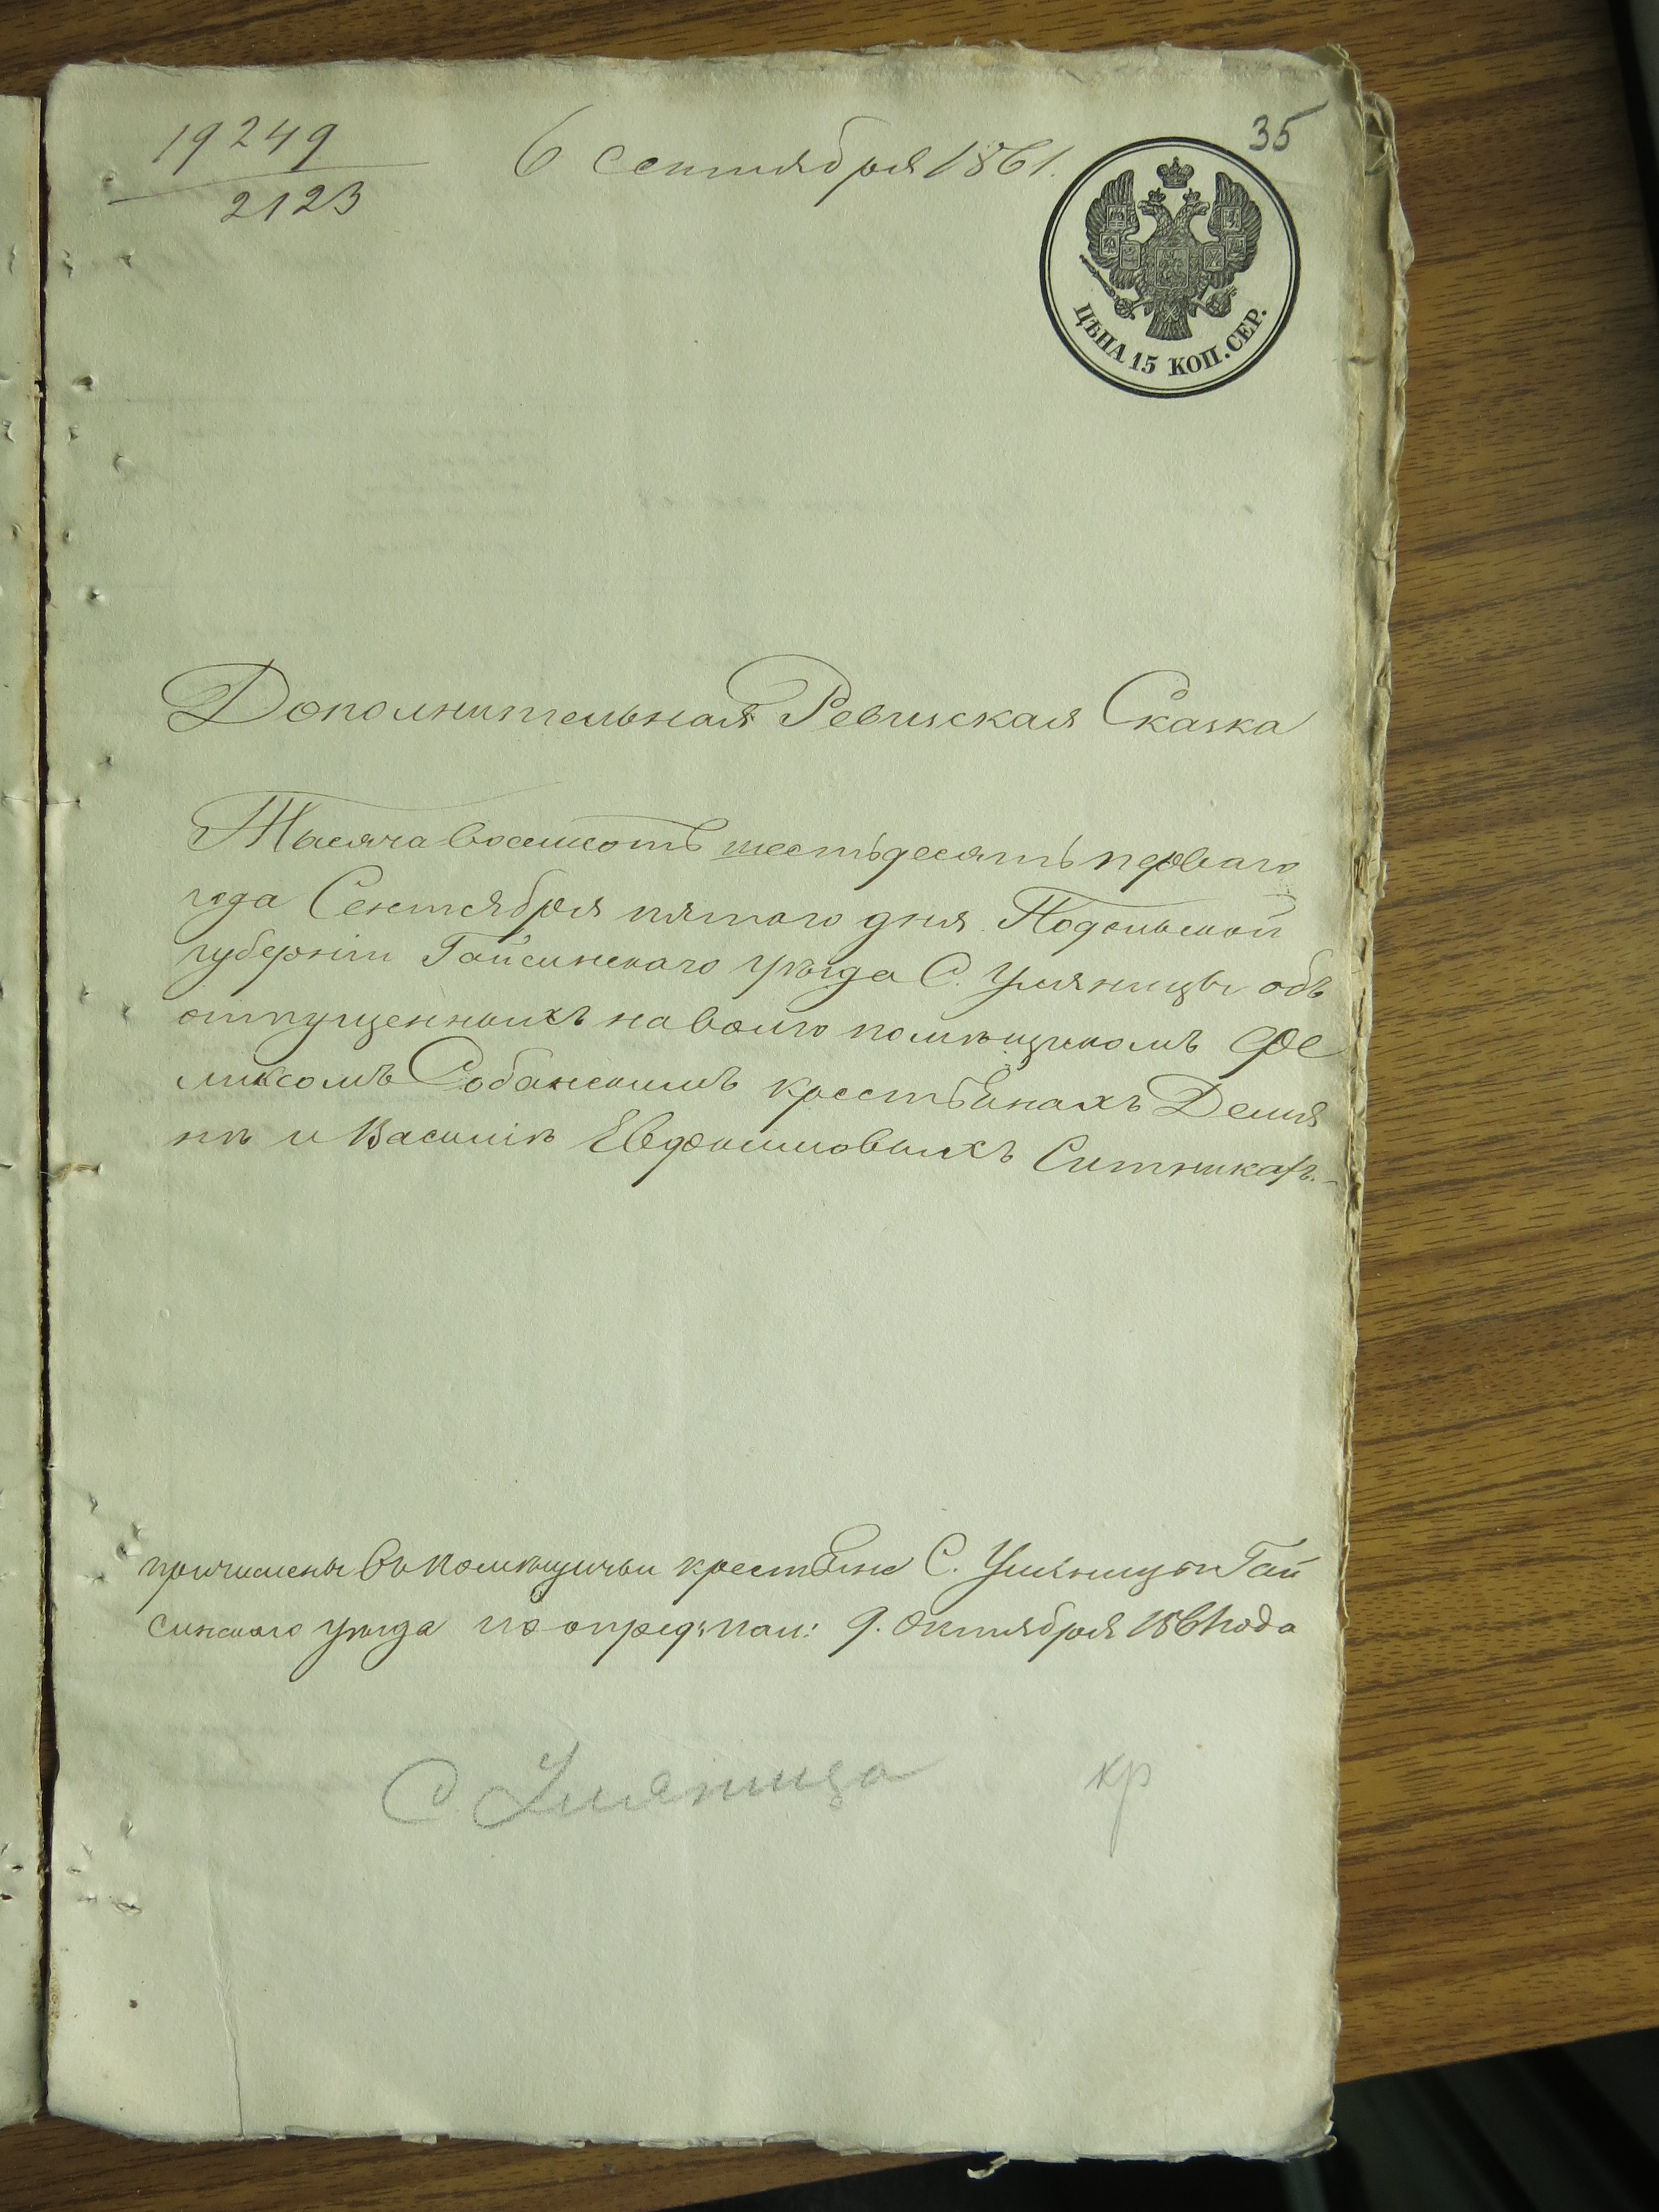 35
19249
2123
6 сентября 1861.
ЦѢНА 15 КОП. СЕР.
Дополнительная Ревизская Сказка
Тысяча восемсотъ шестьдесятъ перваго
года Сентября пятаго дня Подольской
губерніи Гайсинскаго уѣзда С. Умяницы объ
отпущенныхъ на волю помѣщикомъ Фе
ликсомъ Собанскимъ крестьянахъ Демья
нѣ и Василіѣ Евфимовыхъ Ситникахъ.
причислены въ помѣщичьи крестьяне С. Уляницы Гай
синскаго уѣзда по опред: пал: 9. Октября 1861 года
С. Уляница
кр